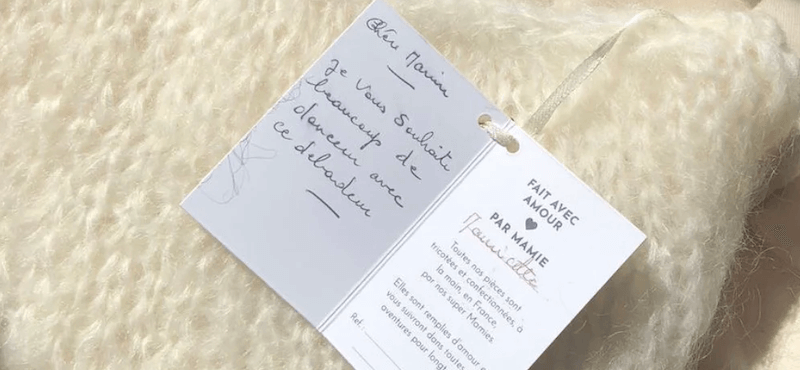 Chère Marion
Je vous souhaite
beaucoup de
douceur avec
ce débardeur
FAIT AVEC
AMOUR
PAR MAMIE
Toutes nos pièces sont
tricotées et confectionnées, à
la main, en France,
par nos super Mamies.
Elles sont remplies d'amour e
vous suivront dans toutes
aventures pour longt
Ref.: